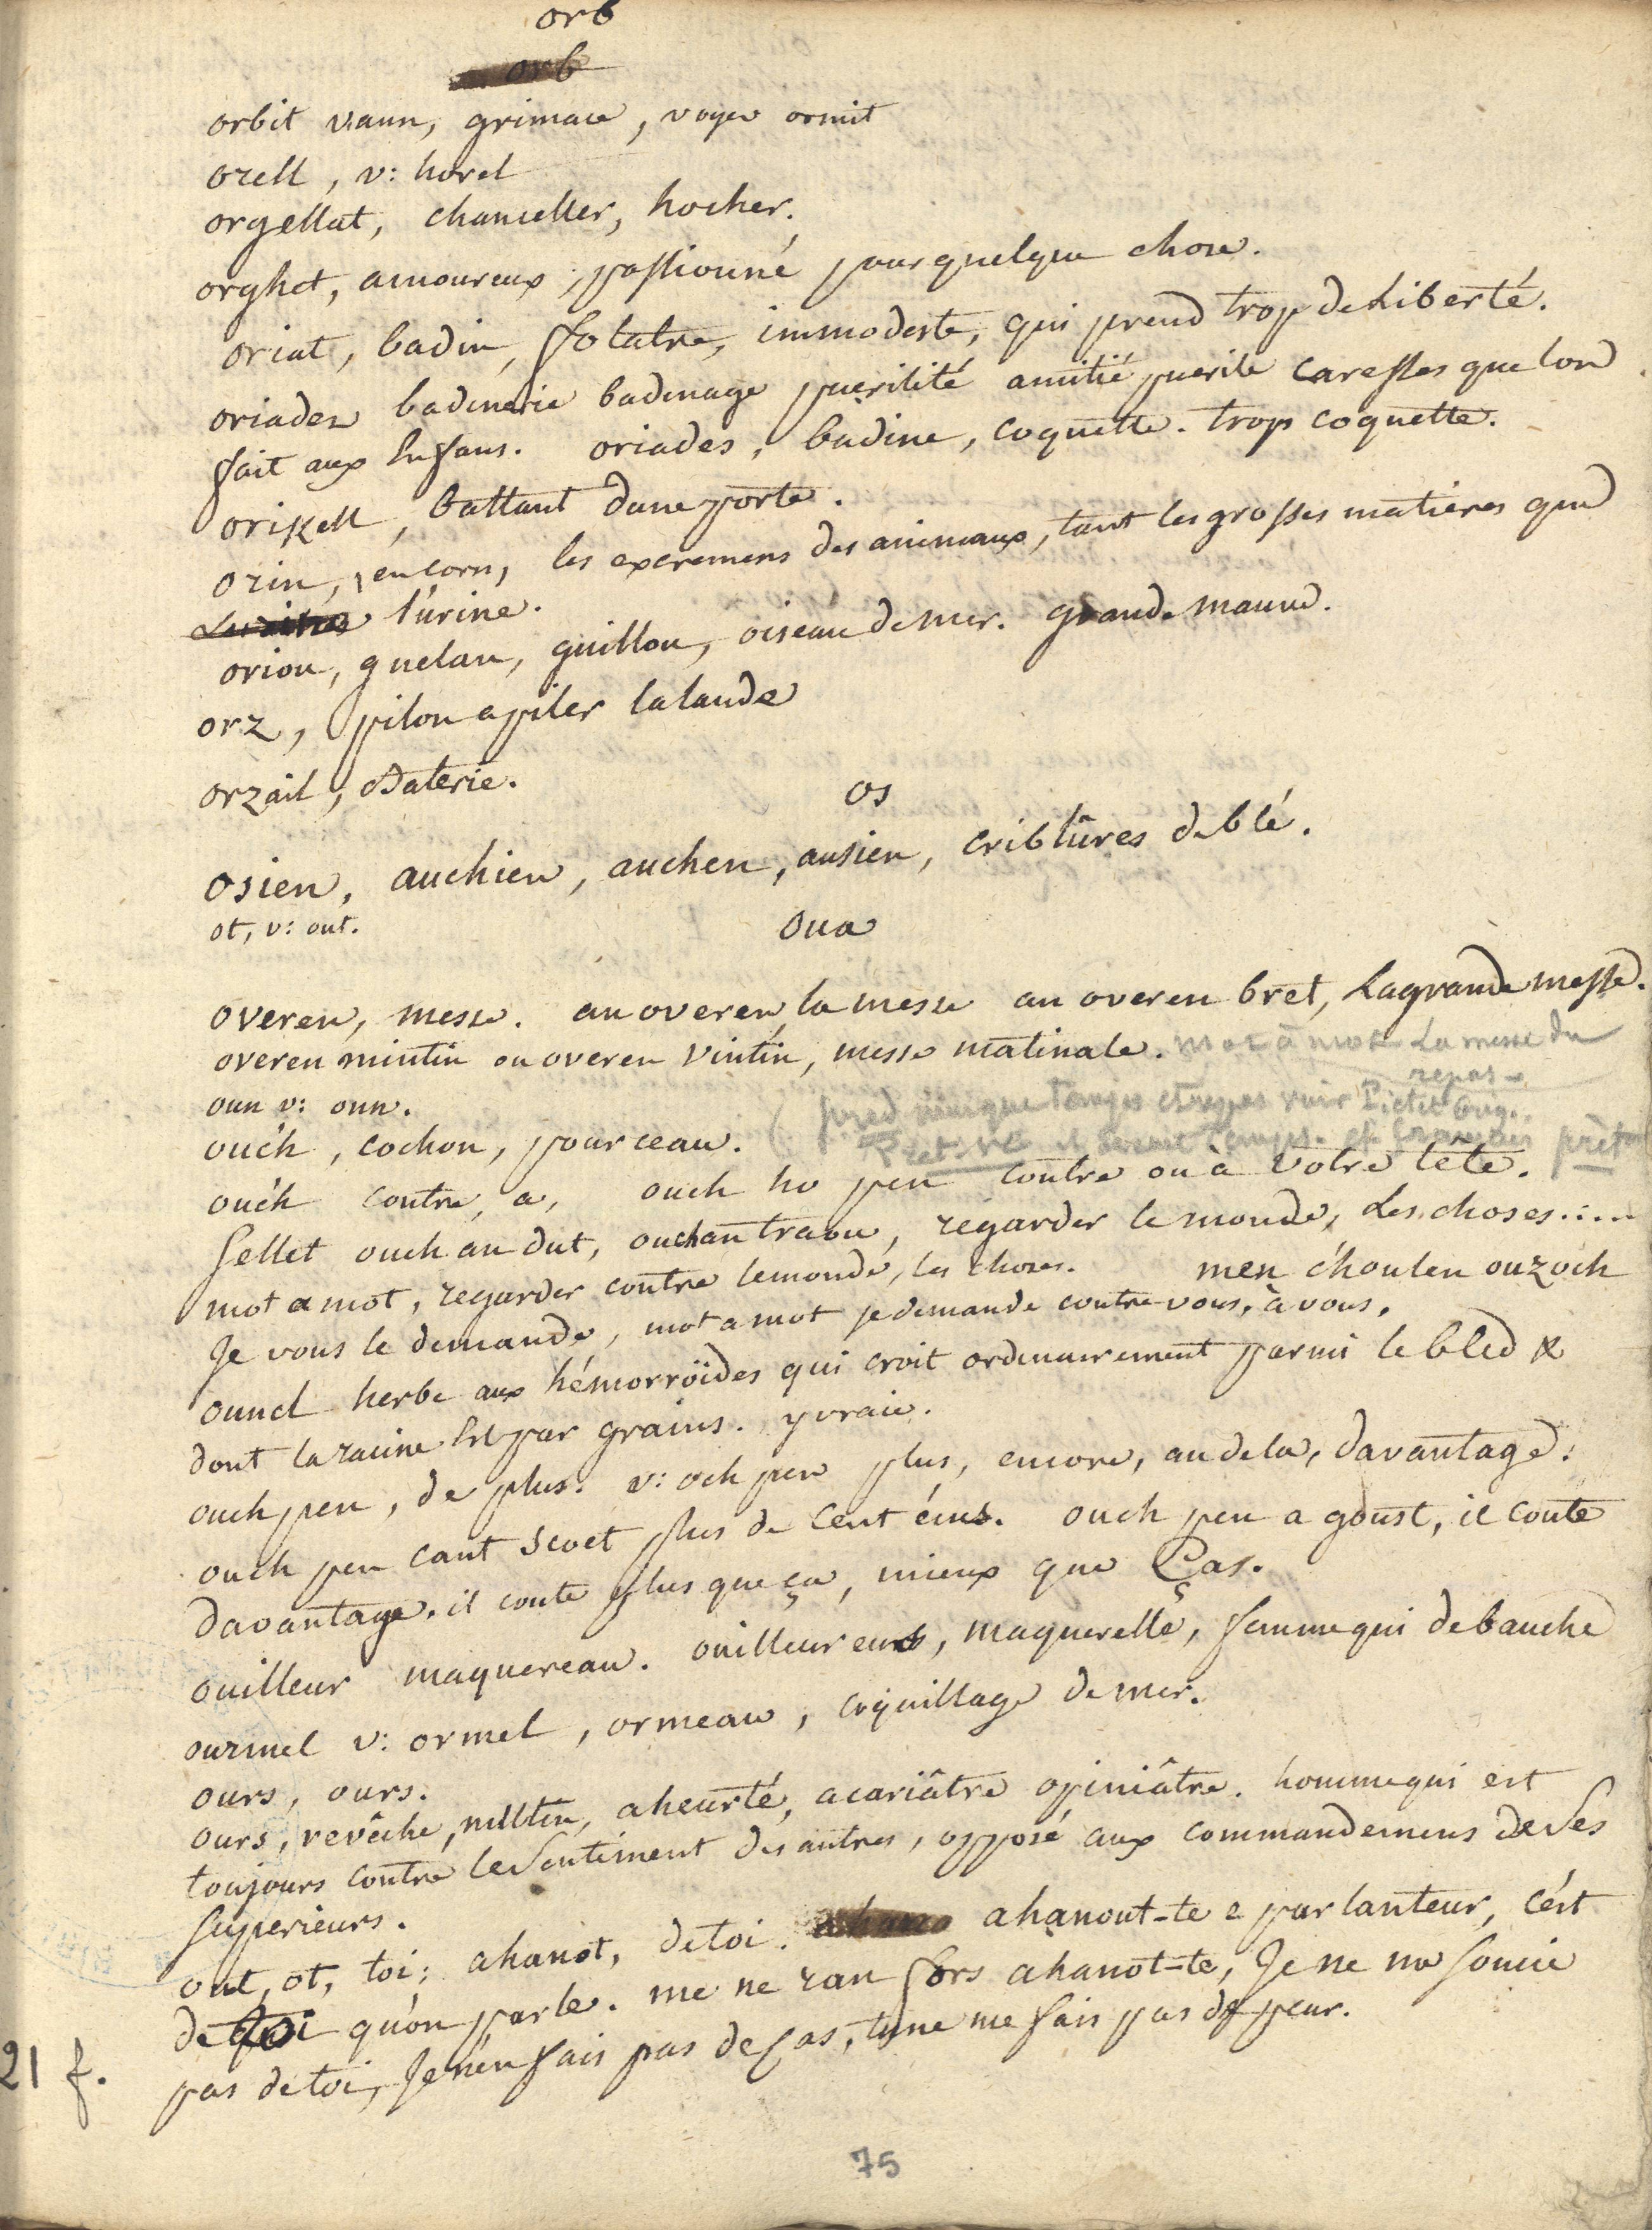 orb
orb
orbit vaun, grimace, voyez ormit
orell, v: horel
orgellat, chanceller, hocher.
orghet, amoureux, passionné pour quelque chose.
oriat, badin, folatre, immodeste, qui prend trop de Liberté.
oriadez badinerie badinage puerilité amitié puerile caresses que lon
fait aux Enfans. oriades, badine, coquette. trop coquette.
orikell, battant dune porte.
orin, en corn, les excremens des animaux, tant les grosses matieres que
l'urine.
oriou, guelan, guillou, oiseau de mer. grande mauve.
orz, pilon a piler lalande
orzail, Baterie.
os
osien, auchien, auchen, ausien, criblûres deblé.
ot, v: out.
oua
overen, messe. an overen, la messe an overen bret, Lagrande messe.
overen mintin ou overen vintin, messe matinale. mot à mot La messe du
repas
oun v: onn.
ouc'h, cochon, pourceau. ( pred
ouc'h contre, a, ouch ho pen contre ou à votre tête.
sellet ouch an dut, ouch an traou, regarder le monde, Les choses.....
mot a mot, regarder contre lemonde, les choses. men c'houlen ouzoch
Je vous le demande, mot a mot je demande contre vous, à vous.
ounel herbe aux hémorröïdes qui croit ordinairement parmi le bled &
dont la racine Est par grains. yvraie.
ouch pen, de plus. v: och pen plus, encore, au dela, davantage.
ouch pen cant scoet plus de cent écus. ouch pen a goust, il coute
davantage. il coute plus que ça, mieux que Ças.
ouilleur maquereau. ouilleureus, maquerelle, femme qui debauche
ourmel v: ormel, ormeau, coquillage de mer.
ours, ours.
ours, revêche, mutin, aheurté, acariâtre opiniâtre. homme qui est
toujours contre le Sentiment des autres, opposé aux commandemens de Ses
superieurs.
out, ot, toi; ahanot, de toi. ahanout-te e parlanteur, c'ést
de toi qu'on parle. me ne ran fors ahanot-te, Je ne me soucie
pas de toi, Je n'en fais pas de Cas, tu ne me fais pas de peur.
21 f.
75